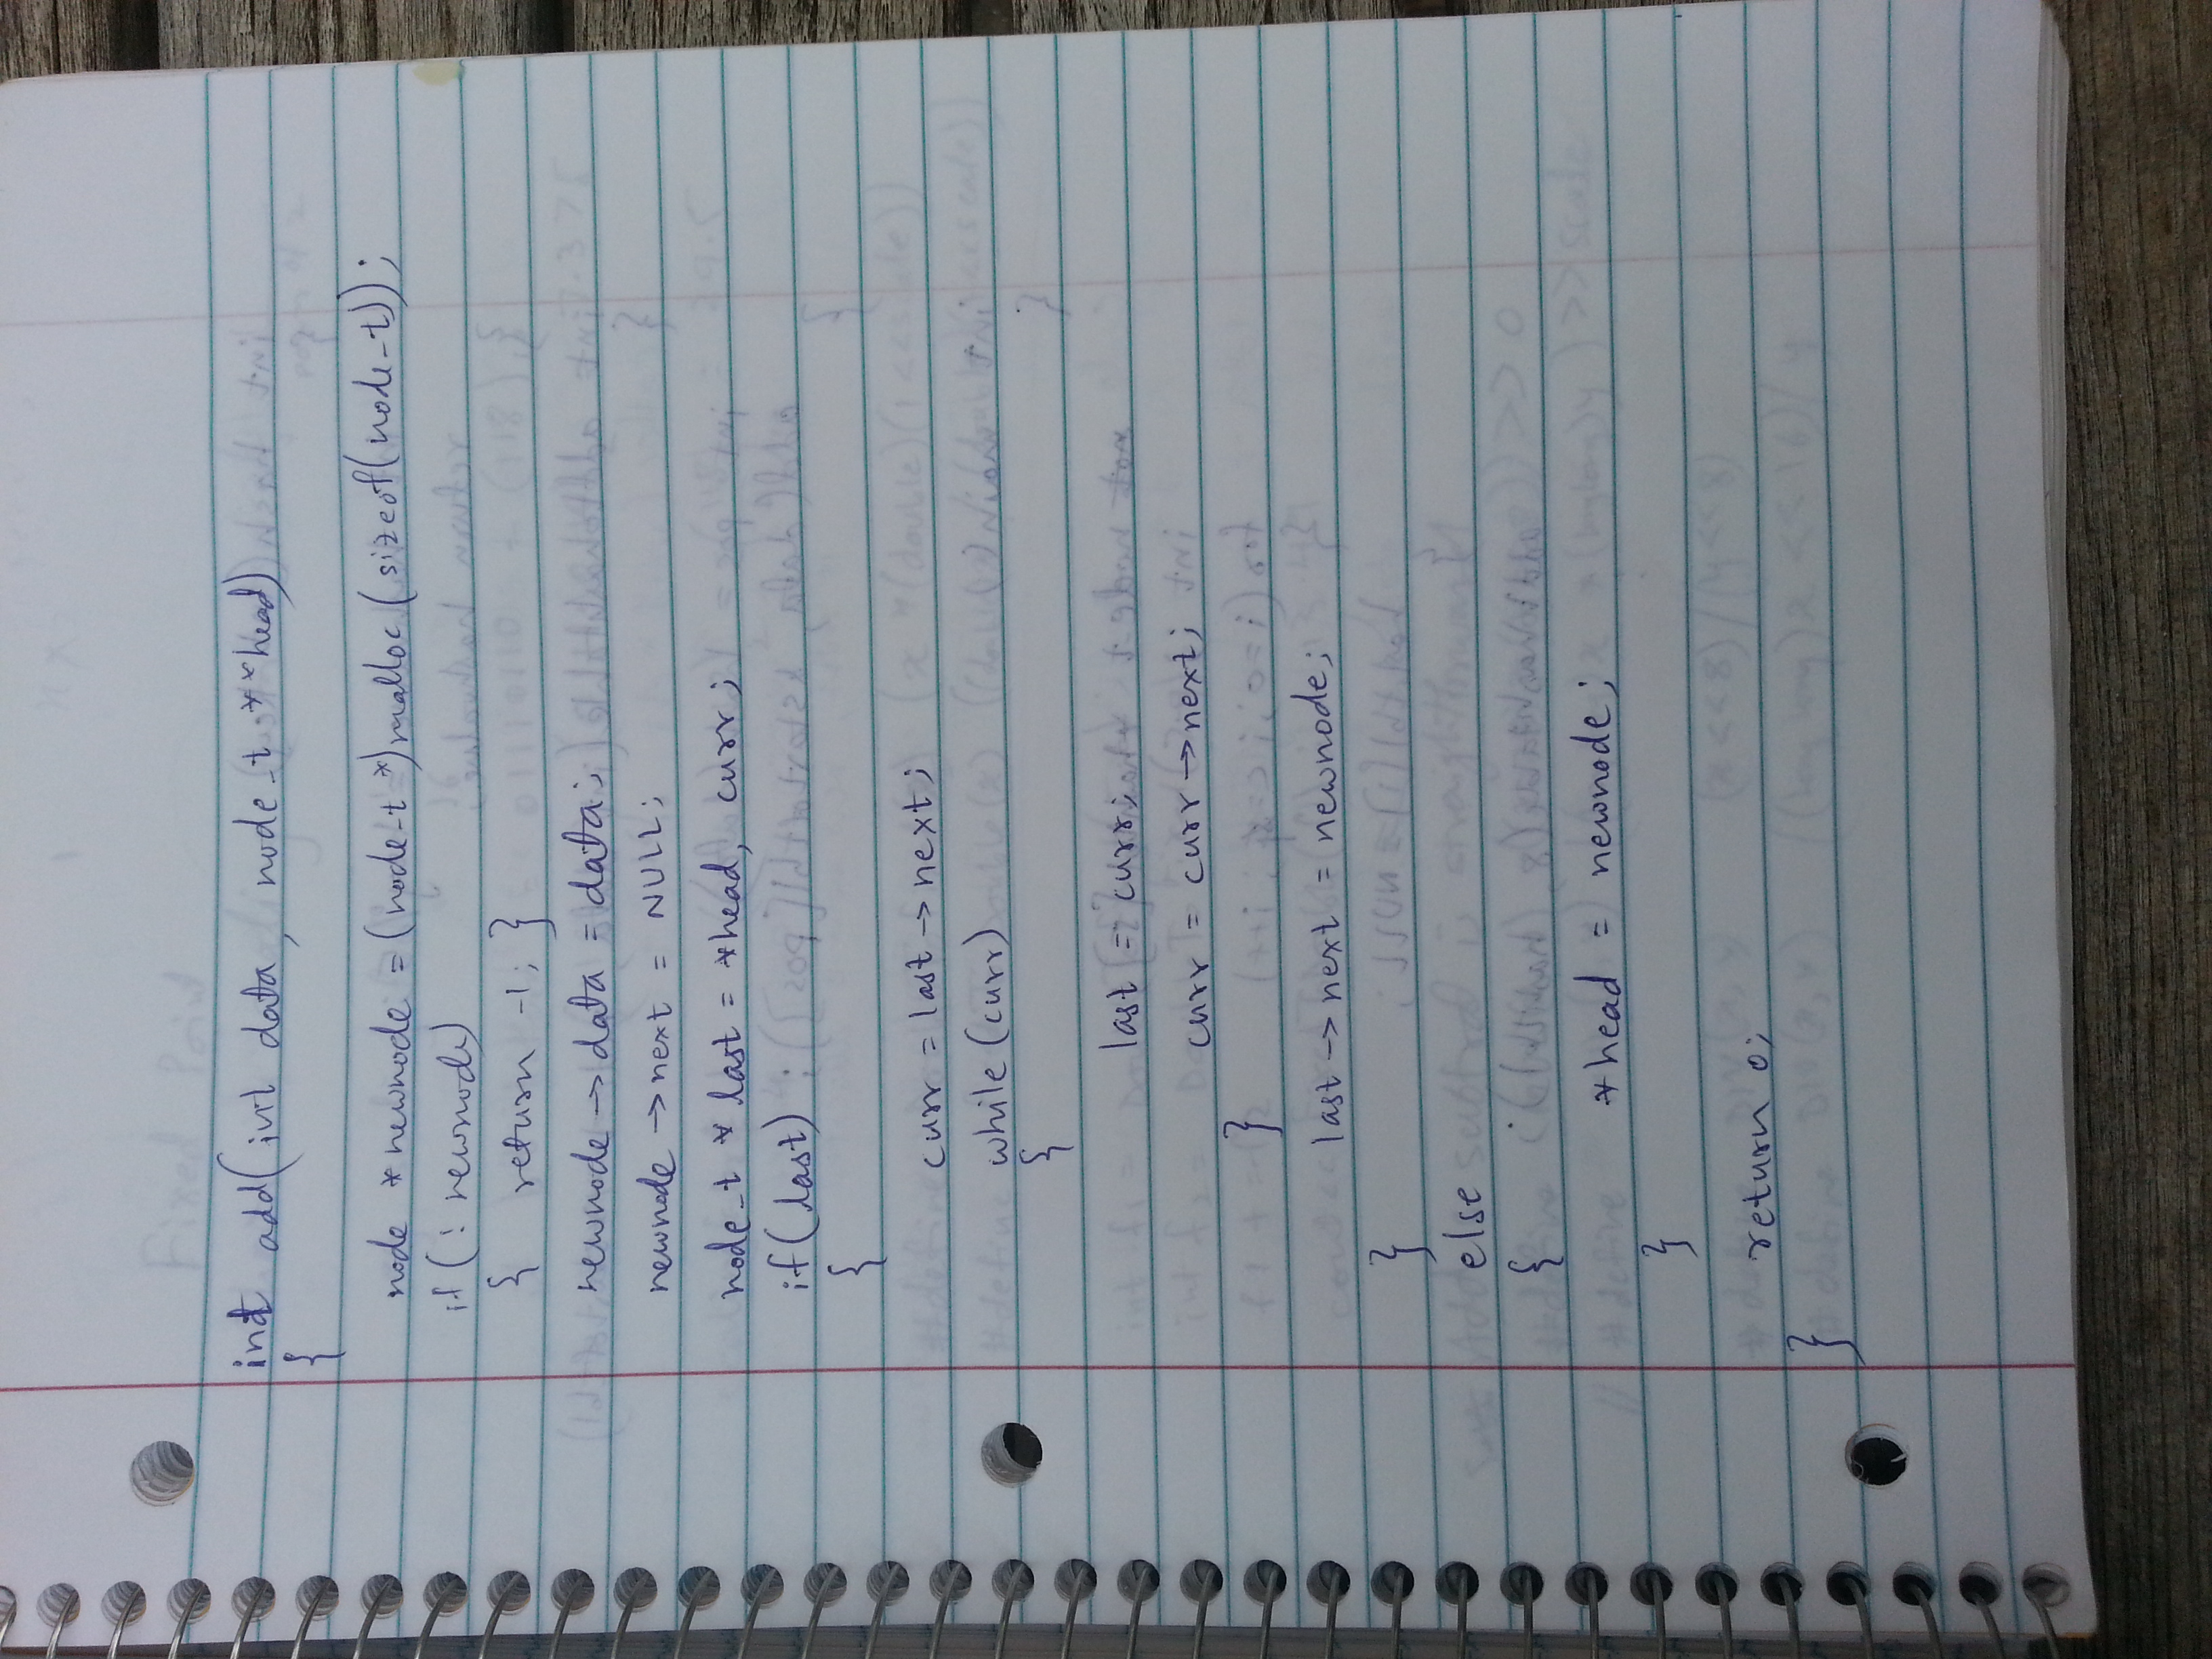 int add(int data, node_t **head)
{
node *newnode = (node_t *)malloc(sizeof(node_t));
if(!newnode)
{ return -1; }
newnode->data = data;
newnode->next = NULL;
node_t *last = *head, curr;
if(last)
{
curr = last->next;
while(curr)
{
last = curr;
curr = curr->next;
}
last->next = newnode;
}
else
{
*head = newnode;
}
return 0;
}